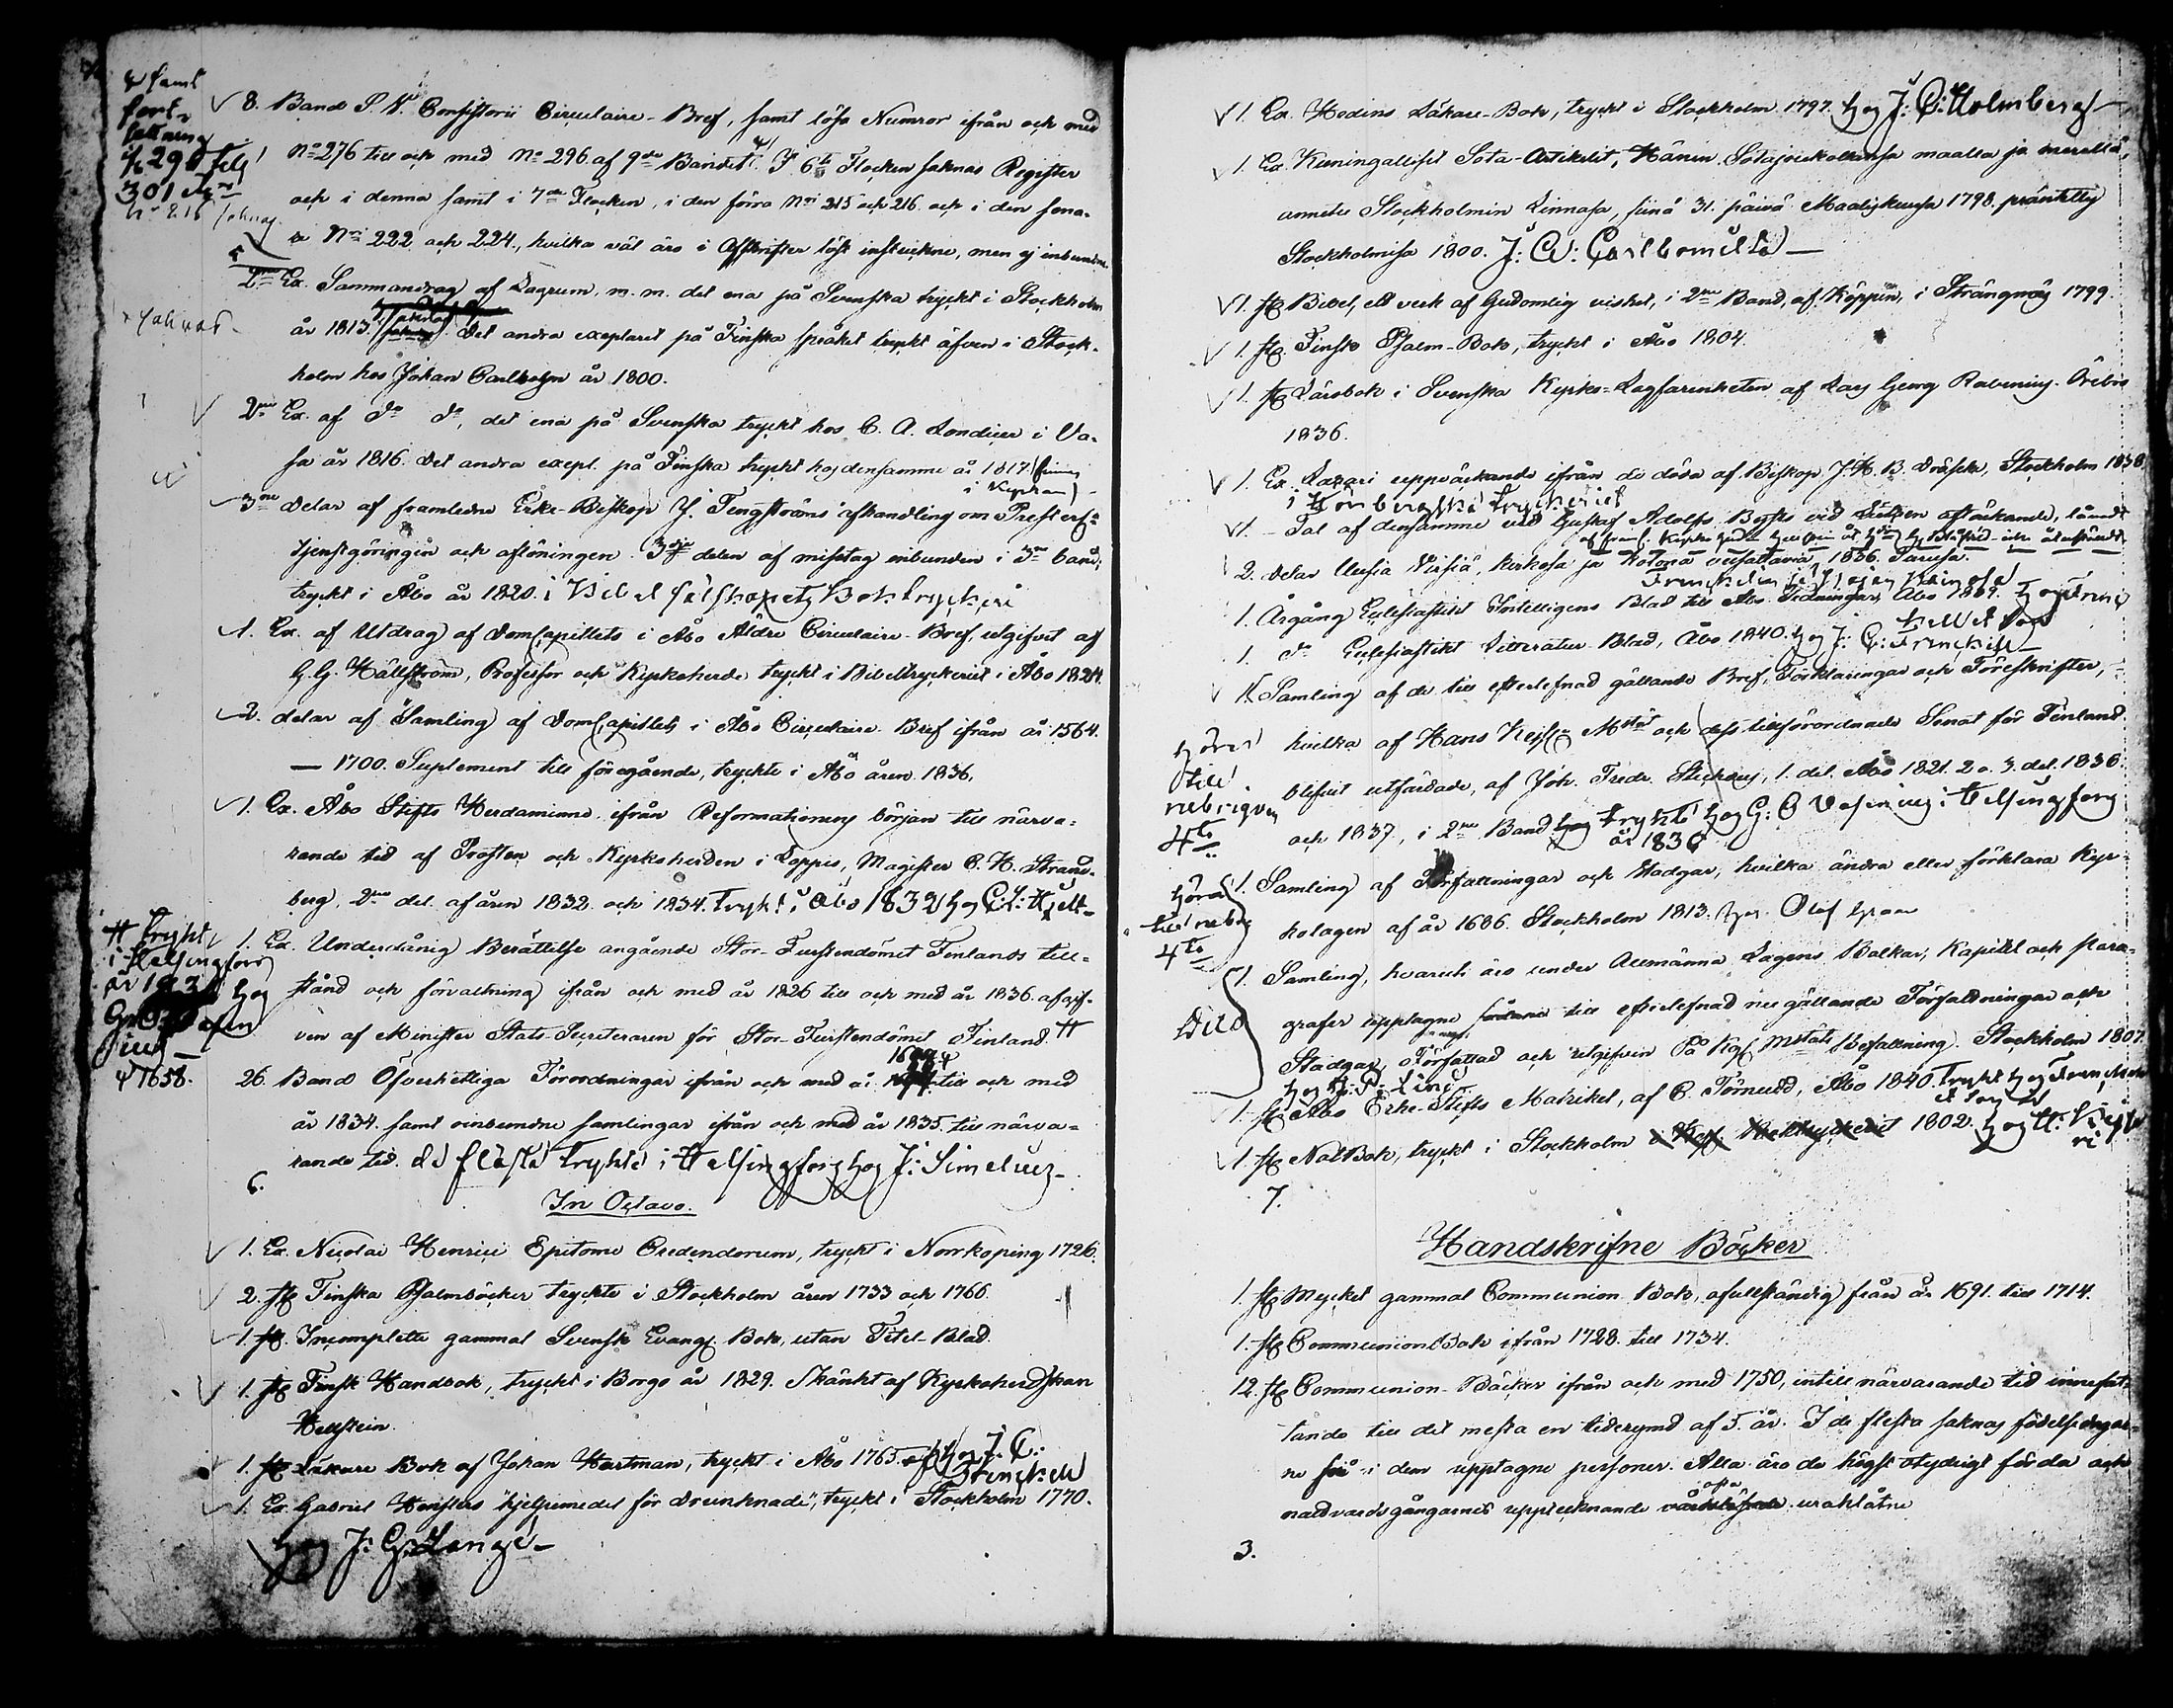 8. Band S. V. Consistorii Circulaire-Bref, samt lösa Numror ifrån och med
No 276 till och med No 296 af 9de Bandet. I 6te Flocken saknas Register
och i denna samt i 7de Flocken, i den förra Nri 215 och 216 och i den sena-
re Nri 222 och 224., hvilka väl äro i Afskrifter löst instuckne, men ej inbundne
samt
fort-
sättning
till
301
No 216 saknas
2ne Ex. Sammandrag af Lagrum. m. m. det ena på Svenska tryckt i Stockholm
år 1813. Det andra exeplaret på Finska språket tryckt äfven i Stock-
holm hos Johan Carlbohm år 1800.
saknas
2ne Ex. af do do, det ena på Svenska tryckt hos C. A. Londicer i Va-
sa år 1816. Det andra exepl. på Finska tryckt hos densamme år 1817 (finnes
i Kyrkan)
3ne Delar af framledne Erke-Biskop J. Tengströms afhandling om Presterl:
tjenstgöringen och aflöningen. 3dje delen af misstag inbunden i 3ne band;
tryckt i Åbo år 1820. i Bibel sälskapets Boktryckeri
1. Ex. af Utdrag af DomCapillets i Åbo Äldre Circulaire-Bref, utgifvet af
G. G. Hällström, Professor och Kyrkoherde tryckt i Bibeltryckeriet i Åbo 1824.
2. delar af Samling af DomCapitlets i Åbo Circulaire Bref ifrån år 1564.
— 1700. Suplement till föregående, tryckte i Åbo åren 1836.
1. Ex. Åbo Stifts Herdaminne ifrån Reformationens början till närva-
rande tid af Prosten och Kyrkoherden i Loppis, Magister C. H. Strand-
berg, 2ne del. af åren 1832 och 1834. Tryckt i Åbo 1832 hos Hjelt
1. Ex. Underdånig Berättelse angående Stor-Furstendömet Finlands till-
stånd och förvaltning ifrån och med år 1826 till och med år 1836. afgif-
ven af Minister Stats-Secreteraren för Stor-Furstendömet Finland. #
# trykt
i Helsingfors
hos
26. Band Öfverhetliga Förordningar ifrån och med år till och med
år 1834. samt oinbundne samlingar ifrån och med år 1835. till närva-
rande tid. de flästa trykte i Helsingfors hos J: Simelius
6.
In Octavo.
1. Ex. Nicolai Henrici Epitome Credendorum, tryckt i Norrköping 1726.
2. st. Finska Psalmböcker tryckte i Stockholm åren 1733 och 1766.
1. st. Incomplette gammal Svensk Evang. Bok, utan Titel-Blad.
1. st. Finsk Handbok, tryckt i Borgo år 1829. Skänkt af Kyrkoherdskan
Hellstein.
1. st. Läkare Bok af Johan Hartman, tryckt i Åbo 1765. hos J. C:
Frenckell
1. Ex. Gabriel "hjelpemedel för Drunknade", tryckt i Stockholm 1770.
hos J: G: Lange
1. Ex. Hedins Läkare-Bok, tryckt i Stockholm 1797. hos J: C: Holmberg
1. Ex. Kuningalliset Sota-Artikelit, Hänen Sotajoukollensa maalla ja merellä,
annetu Stockholmin Linnasa, sinä 31. päivä Maaliskuusa 1798. präntätty
Stockholmisa 1800. J: C: Carlbomilda
1. st. Bibel, ett verk af Gudomlig vishet, i 2ne Band, af Köppen, i Strängnäs 1799.
1. st. Finsk Psalm-Bok, tryckt i Åbo 1804.
1. st. Lärobok i Svenska Kyrko-Lagfarenheten af Lars Georg Rabenius. Örebro
1836.
1. Ex. Lazari uppväckande ifrån de döda af Biskop J. H. B. Dräseke, Stockholm 1838.
i Hörbergska tryckeriet
1. Tal af densamme vid Gustaf Adolfs Bysts vid Lützen aftäckande,
2. Delar Uusia Virsiä, kirkosa ja Kotona veisattavia, 1836. Turusa.
1. Årgång Ecclesiastikt Intelligens Blad till Åbo Tidningar, Åbo 1809. hos Frenc
kell et Son
1. do Ecclesiastikt Litteratur Blad, Åbo 1840. hos J: C: Frenckell
1. Samling af de till efterlefnad gällande Bref, Förklaringar och Föreskrifter,
hvilka af Hans Kejs. Mstät och dess tillförordnade Senat för Finland.
blifvit utfärdade, af Joh. Fredr. 1. del. Åbo 1821. 2 o. 3. del. 1836
och 1837, i 2ne Band trykte hos G: O Wasenius i Helsingfors
år 1836
hörer
till
rubriquen
4to
1. Samling af Författningar och Stadgar, hvilka ändra eller förklara Kyr-
kolagen af år 1686. Stockholm 1813. hos Olof Gran
hörer
till rubr
4to
1. Samling, hvaruti äro under Allmänna Lagens Balkar, Kapitel och Para-
grafer upptagne till efterlefnad nu gällande Författningar och
Stadgar, Författad och utgifven På Kgl Mstäts Befallning. Stockholm 1807.
hos
Dito
1. st. Åbo Erke-Stifts Matrikel, af C. Törnudd, Åbo 1840. Tryckt hos Frenckell
et Son
1. st. NotBok, tryckt i Stockholm 1802. hos
7.
Handskrifne Böcker
1. st. Mycket gammal Communion Bok, ofullständig från år 1691. till 1714.
1. st. CommunionBok ifrån 1728. till 1734.
12. st. Communion-Böcker ifrån och med 1750, intill närvarande tid innefat-
tande till det mesta en tiderymd af 5. år. I de flesta saknas födelsedagar-
ne för i dem upptagne personer. Alla äro de högst otydligt förda och
nattvardsgångarnes upptecknande ofta uraklåtne
3.